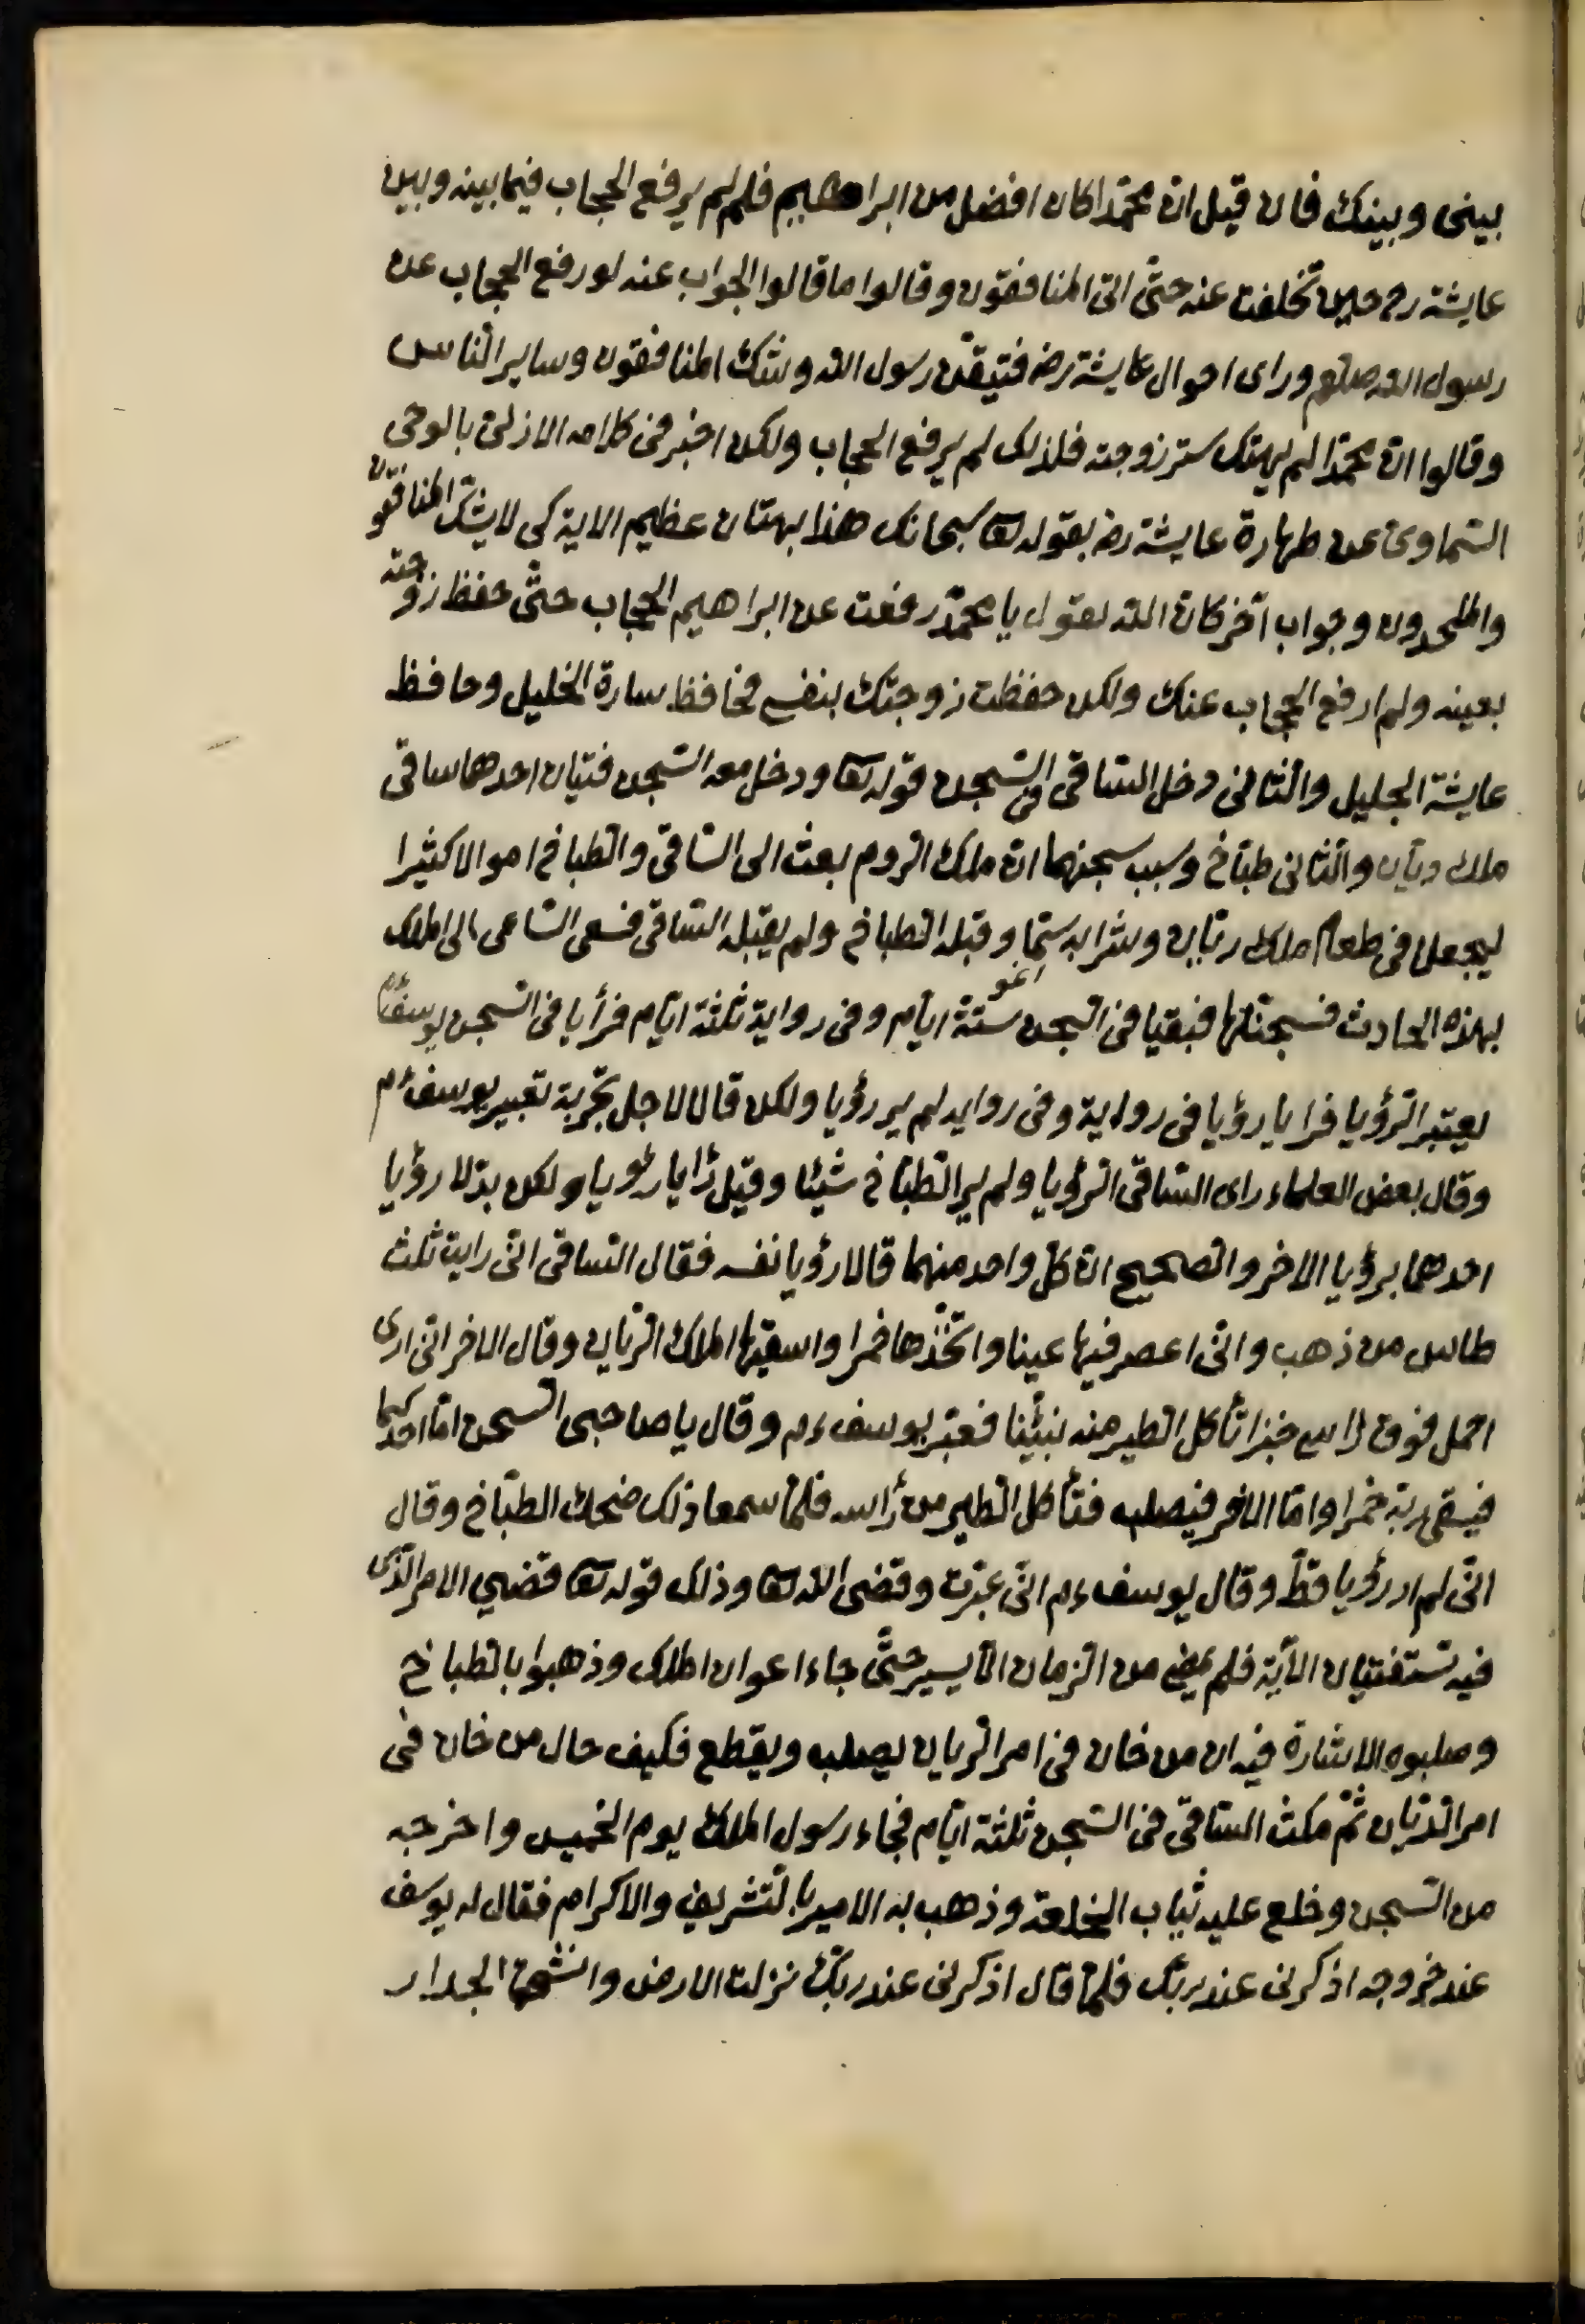 بينى وبينك فان قيل ان محمّدا كان افضل من ابراهيم فلم لم يرفع الحجاب فيما بينه وبين
عايشة رض حين تخلفت عنه حتّى اتى المنافقون وقالوا ما قالوا الجواب عنه لو رفع الحجاب عن
رسول الله صلعم وراى احوال عايشة رض فتيقّن رسول الله وشك المنافقون وساير الناس
وقالوا ان محمّدا لم يهتك ستر زوجته فلذلك لم يرفع الحجاب ولكن اخبر فى كلامه الازلى بالوحى
السّماوى عن طهارة عايشة رض بقوله تعا سبحانك هذا بهتان عظيم الاية كى لا يشكّ المنافقون
والملحدون وجواب آخر كان الله يقول يا محمّد رفعت عن ابراهيم الحجاب حتّى حفظ زوجته
بعينه ولم ارفع الحجاب عنك ولكن حفظت زوجتك بنفسى فحافظ سارة الخليل وحافظ
عايشة الجليل والثانى دخل السّاقى فى السّجن قوله تعا ودخل معه السّجن فتيان احدهما ساقى
ملك ريّان والثانى طبّاخ وسبب سجنهما ان ملك الروم بعث الى السّاقى والطباخ اموالا كثيرا
ليجعلا فى طعام ملك ريّان وشرابه سمّا وقبله الطباخ ولم يقبله السّاقى فسعى السّاعى الى الملك
بهذه الحادث فسجنهما فبقيا فى السّجن ستّة ايّام وفى رواية ثلثة ايّام فرأيا فى السّجن يوسف ءم
يعبّر الرؤيا فرايا رؤيا فى رواية وفى رواية لم ير رؤيا ولكن قالا لاجل تجربة تعبير يوسف ءم
وقال بعض العلماء راى السّاقى الرؤيا ولم ير الطبّاخ شيئا وقيل رأيا رؤيا ولكن بدّلا رؤيا
احدهما برؤيا الاخر والصحيح ان كل واحد منهما قالا رؤيا نفسه فقال السّاقى انّى رايت ثلث
طاس من ذهب وانّى اعصر فيها عينا واتّخذها خمرا واسقيها الملك الريان وقال الاخر انّى ارى
احمل فوق راسى خبزا تأكل الطير منه نبئنا فعبّر يوسف ءم وقال يا صاحبى السجن امّا احدكما
فيسقى ربّه خمرا وامّا الاخر فيصلب فتأكل الطير من رأسه فلمّا سمعا ذلك ضحك الطبّاخ وقال
انّى لم ار رؤيا قطّ وقال يوسف ءم انّى عبّرت وقضى الله تعا وذلك قوله تعا قضي الامر الّذى
فيه تستفتيان الآية فلم يمض من الزمان الّا يسير حتّى جاء اعوان الملك وذهبوا بالطباخ
وصلبوه الاشارة فيه ان من خان فى امر الريان يصلب ويقطع فكيف حال من خان فى
امر الديّان ثمّ مكث السّاقى فى السّجن ثلثة ايّام فجاء رسول الملك يوم الخميس واخرجه
من السّجن وخلع عليه ثياب الخلعة وذهب به الامير بالتشريف والاكرام فقال له يوسف
عند خروجه اذكرنى عند ربك فلمّا قال اذكرنى عند ربّك نزلت الارض وانشق الجدار